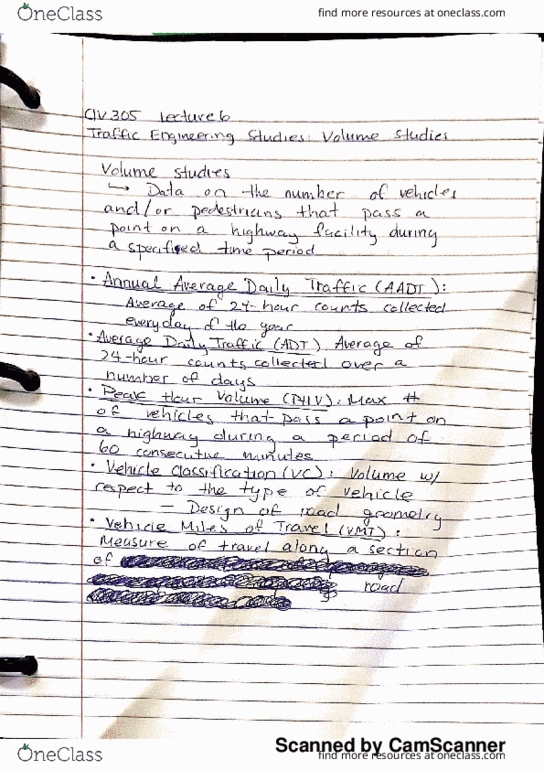 OneClass
find more resources at oneclass.com
CIV 305 Lecture 6
Traffic Engineering Studies: Volume Studies
Volume studies
↳ Data on the number of vehicles
and/or pedestrians that pass a
point on a highway facility during
a specified time period
• Annual Average Daily Traffic (AADT):
Average of 24-hour counts collected
everyday of the year
• Average Daily Traffic (ADT) Average of
24-hour counts collected over a
number of days
• Peak Hour Volume (PHV): Max #
of vehicles that pass a point on
a highway during a period of
60 consecutive minutes
• Vehicle Classification (VC): Volume w/
respect to the type of vehicle
— Design of road geometry
• Vehicle Miles of Travel (VMT):
Measure of travel along a section
of
road
Scanned by CamScanner
OneClass
find more resources at oneclass.com